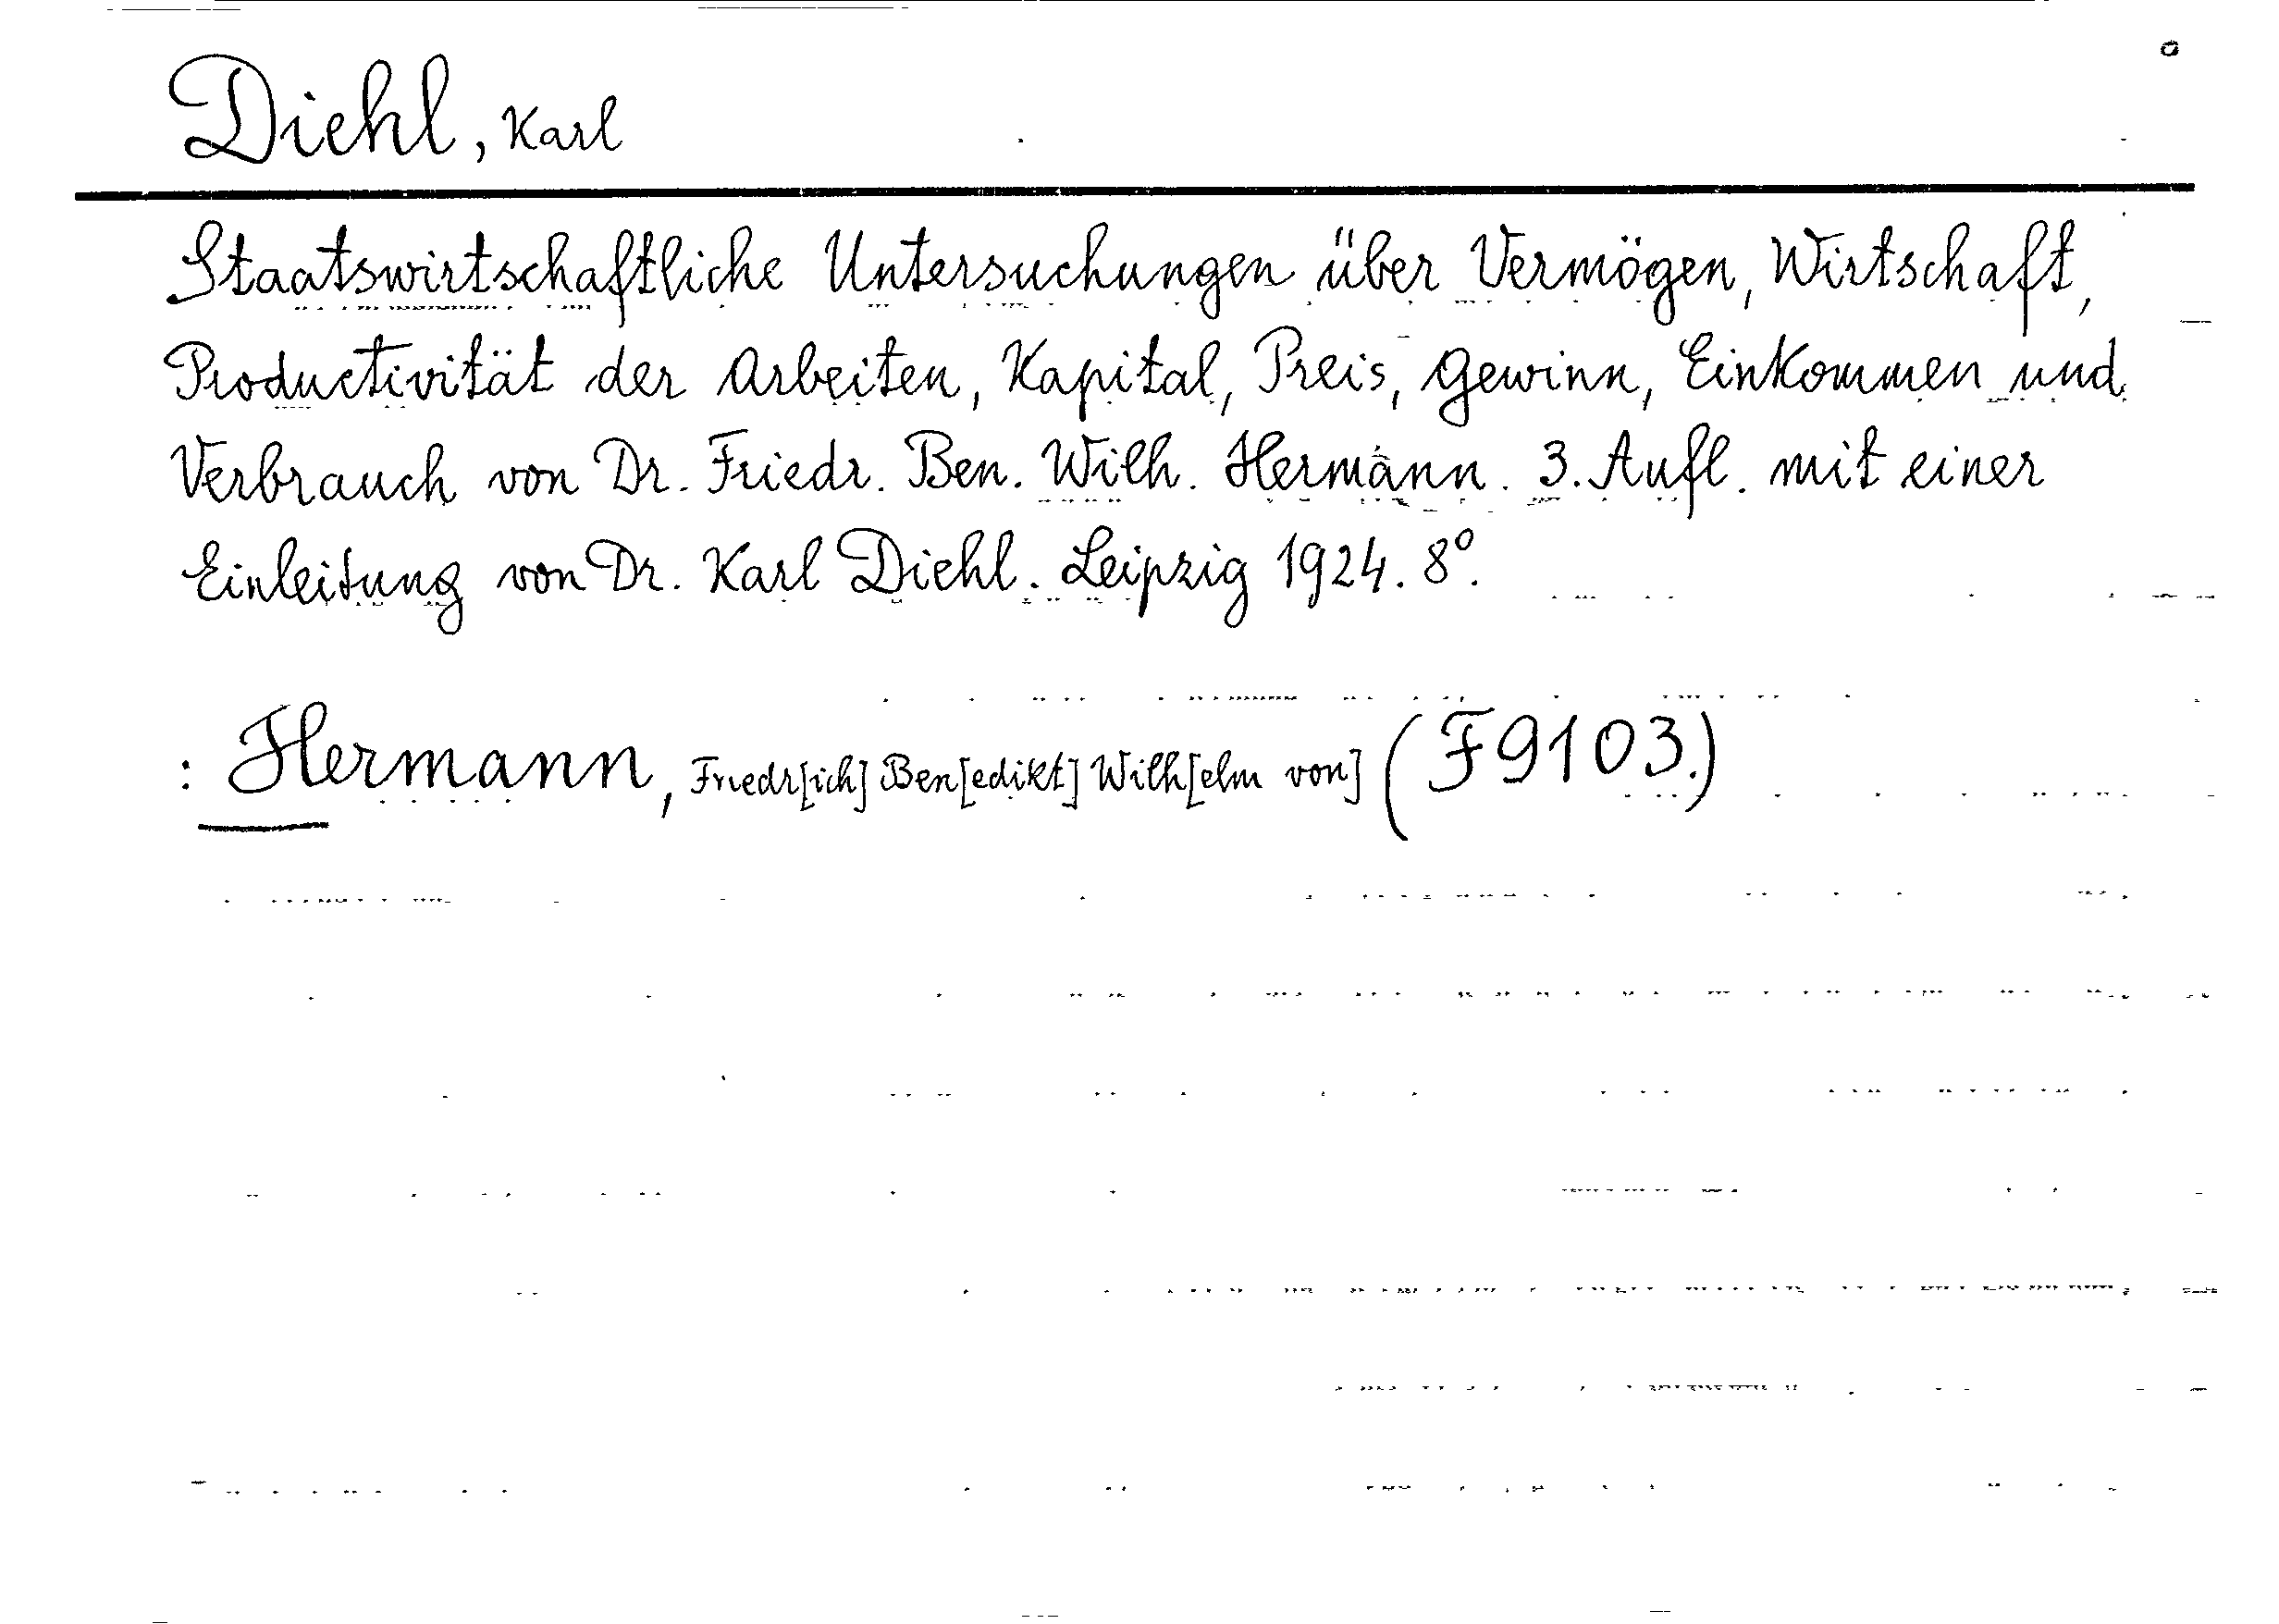 Diehl, Karl
Staatswirtschaftliche Untersuchungen über Vermögen, Wirtschaft,
Productivität der Arbeiten, Kapital, Preis, Gewinn, Einkommen und
Verbrauch von Dr. Friedr. Ben. Wilh. Hermann. 3. Aufl. mit einer
Einleitung von Dr. Karl Diehl. Leipzig 1924. 8°.
: Hermann, Friedr[ich] Ben[edikt] Wilh[elm von] (F9103.)